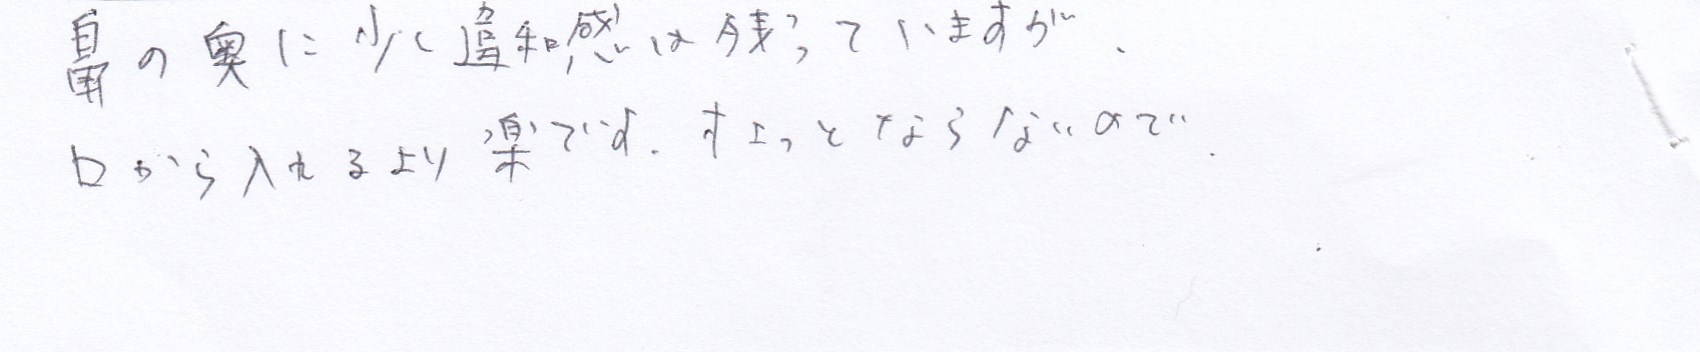 鼻の奥に少し違和感は残っていますが、
口から入れるより楽です。オエっとならないので。